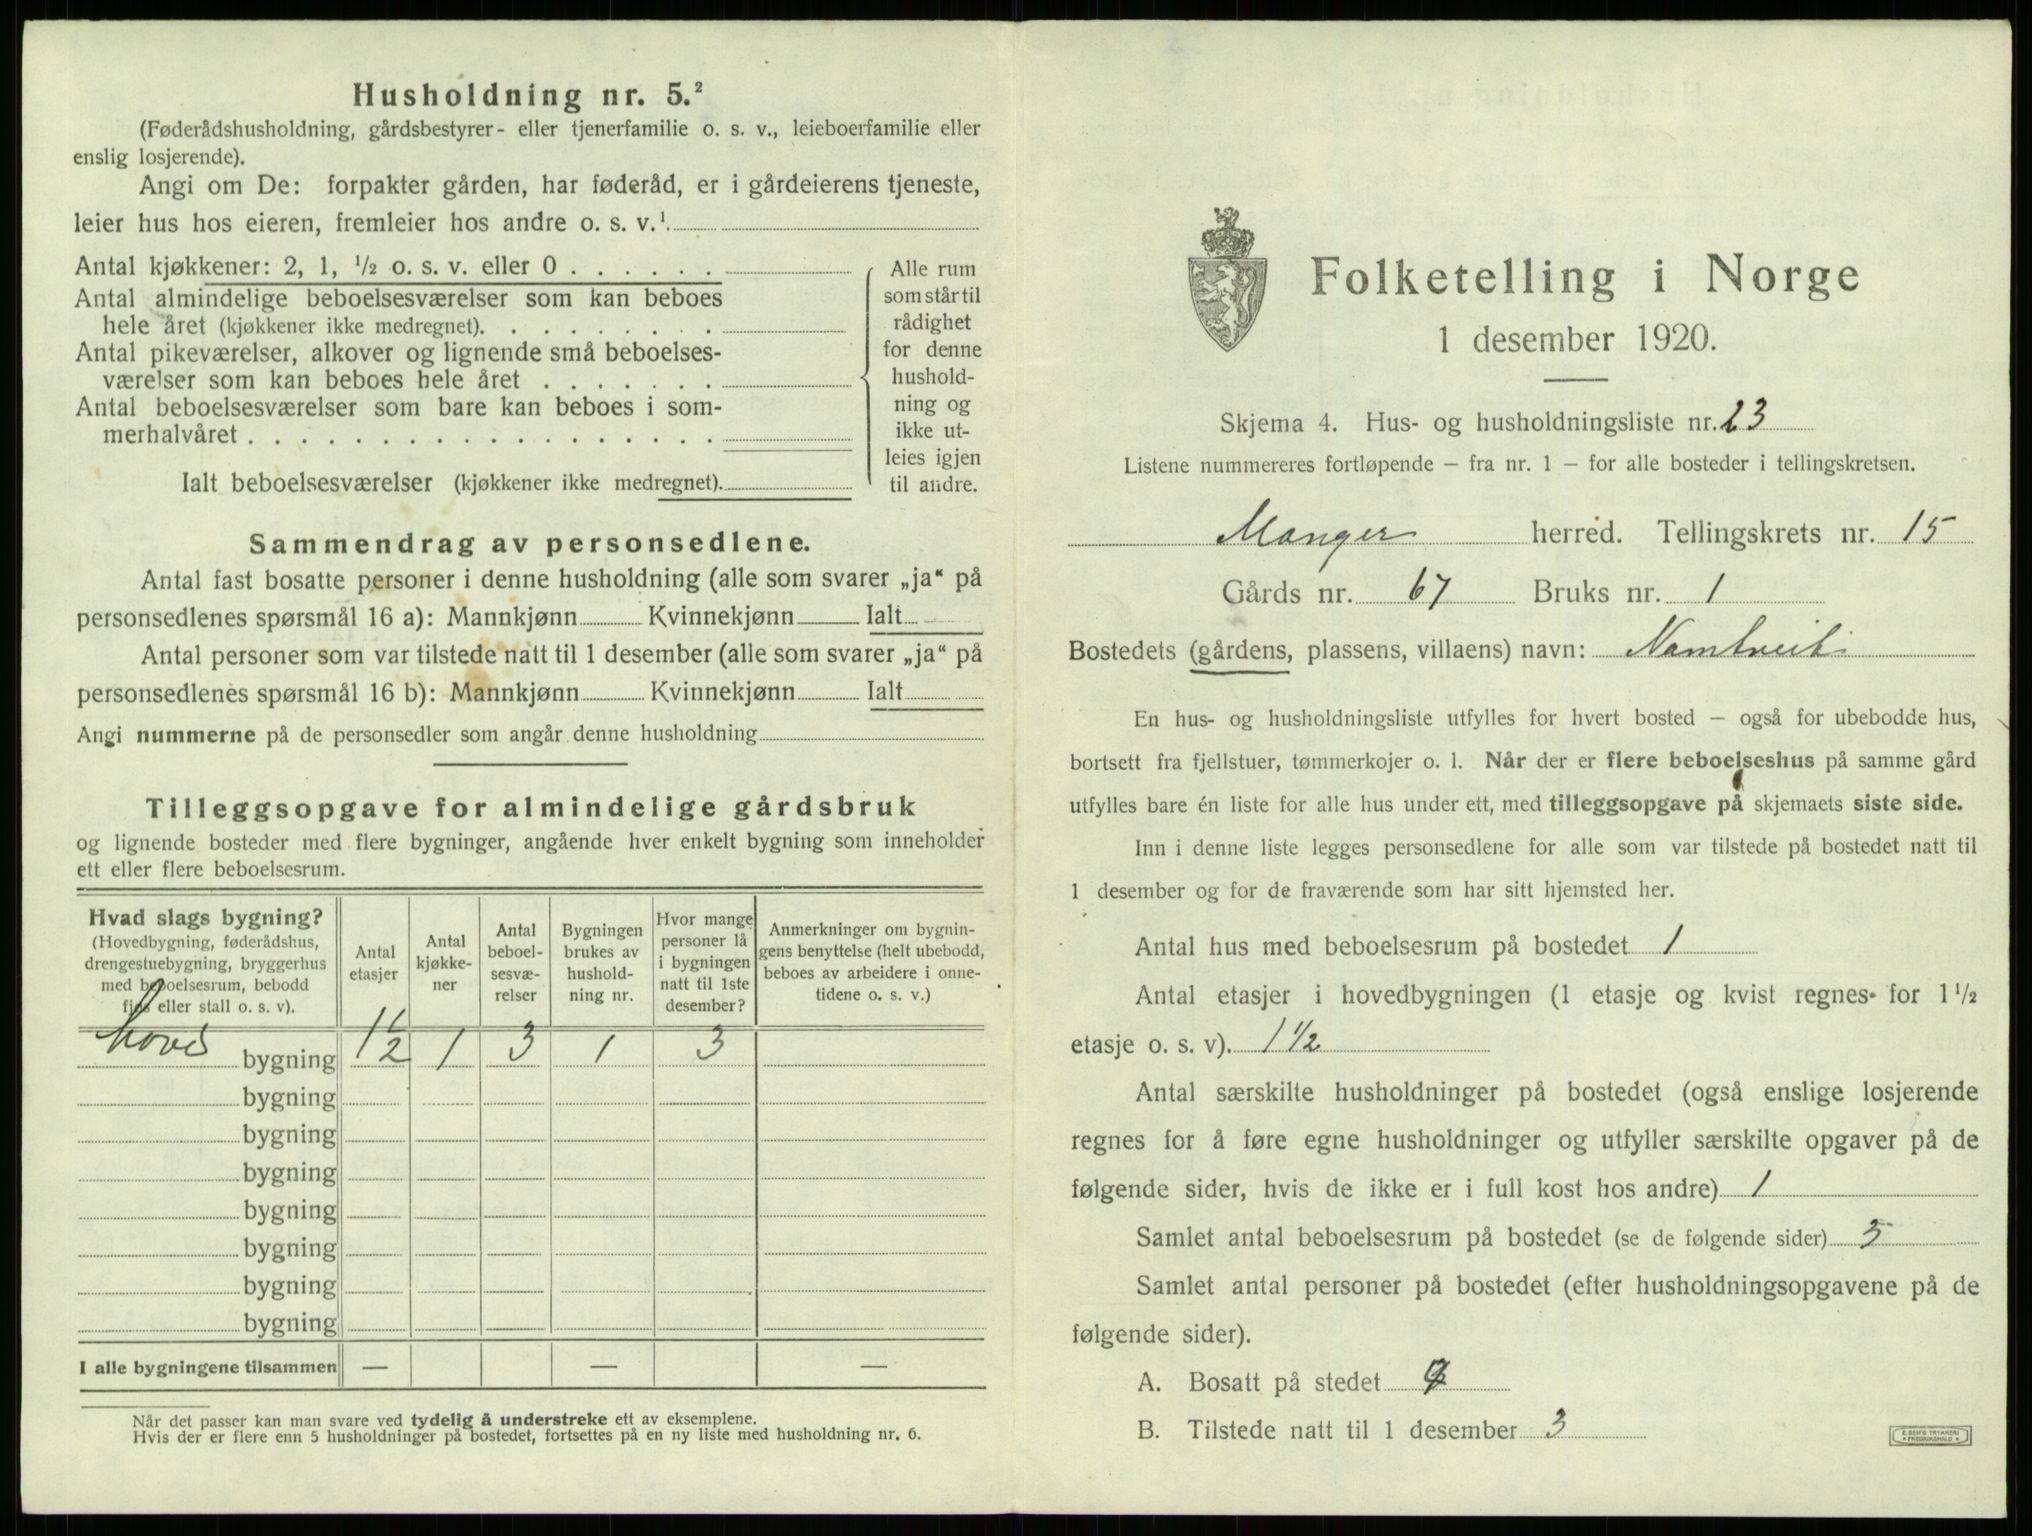 Husholdning nr. 5.²
(Føderådshusholdning, gårdsbestyrer- eller tjenerfamilie o. s. v., leieboerfamilie eller
enslig losjerende).
Angi om De: forpakter gården, har føderåd, er i gårdeierens tjeneste,
leier hus hos eieren, fremleier hos andre o. s. v.¹
Antal kjøkkener: 2, 1, ½ o. s. v. eller 0 . . . . . .
Antal almindelige beboelsesværelser som kan beboes
hele året (kjøkkener ikke medregnet). . . . . . . . .
Antal pikeværelser, alkover og lignende små beboelses-
værelser som kan beboes hele året . . . . . . .
Antal beboelsesværelser som bare kan beboes i som-
merhalvåret . . . . . . . . . . . . . . . . . .
Ialt beboelsesværelser (kjøkkener ikke medregnet).
Alle rum
som står til
rådighet
for denne
hushold-
ning og
ikke ut-
leies igjen
til andre.
Sammendrag av personsedlene.
Antal fast bosatte personer i denne husholdning (alle som svarer „ja“ på
personsedlenes spørsmål 16 a): Mannkjønn Kvinnekjønn Ialt
Antal personer som var tilstede natt til 1 desember (alle som svarer „ja“ på
personsedlenes spørsmål 16 b): Mannkjønn Kvinnekjønn Ialt
Angi nummerne på de personsedler som angår denne husholdning
Tilleggsopgave for almindelige gårdsbruk
og lignende bosteder med flere bygninger, angående hver enkelt bygning som inneholder
ett eller flere beboelsesrum.
Hvad slags bygning?
(Hovedbygning, føderådshus,
drengestuebygning, bryggerhus
med beboelsesrum, bebodd
fjøs eller stall o. s. v).
Antal
etasjer
Antal
kjøkke-
ner
Antal
beboel-
sesvæ-
relser
Bygningen
brukes av
hushold-
ning nr.
Hvor mange
personer lå
i bygningen
natt til 1ste
desember?
Anmerkninger om bygnin-
gens benyttelse (helt ubebodd,
beboes av arbeidere i onne-
tidene o. s. v.)
hoved bygning 1½ 1 3 1 3
bygning
bygning
bygning
bygning
bygning
bygning
bygning
I alle bygningene tilsammen — — —
Når det passer kan man svare ved tydelig å understreke ett av eksemplene.
Hvis der er flere enn 5 husholdninger på bostedet, fortsettes på en ny liste med husholdning nr. 6.
Folketelling i Norge
1 desember 1920.
Skjema 4. Hus- og husholdningsliste nr. 23
Listene nummereres fortløpende – fra nr. 1 – for alle bosteder i tellingskretsen.
Manger herred. Tellingskrets nr. 15
Gårds nr. 67 Bruks nr. 1
Bostedets (gårdens, plassens, villaens) navn: Namtveit
En hus- og husholdningsliste utfylles for hvert bosted – også for ubebodde hus,
bortsett fra fjellstuer, tømmerkojer o. l. Når der er flere beboelseshus på samme gård
utfylles bare én liste for alle hus under ett, med tilleggsopgave på skjemaets siste side.
Inn i denne liste legges personsedlene for alle som var tilstede på bostedet natt til
1 desember og for de fraværende som har sitt hjemsted her.
Antal hus med beboelsesrum på bostedet 1
Antal etasjer i hovedbygningen (1 etasje og kvist regnes for 1½
etasje o. s. v). 1½
Antal særskilte husholdninger på bostedet (også enslige losjerende
regnes for å føre egne husholdninger og utfyller særskilte opgaver på de
følgende sider, hvis de ikke er i full kost hos andre) 1
Samlet antal beboelsesrum på bostedet (se de følgende sider) 3
Samlet antal personer på bostedet (efter husholdningsopgavene på de
følgende sider).
A. Bosatt på stedet
B. Tilstede natt til 1 desember 3
E. SEM'S TRYKKERI
FREDRIKSHALD